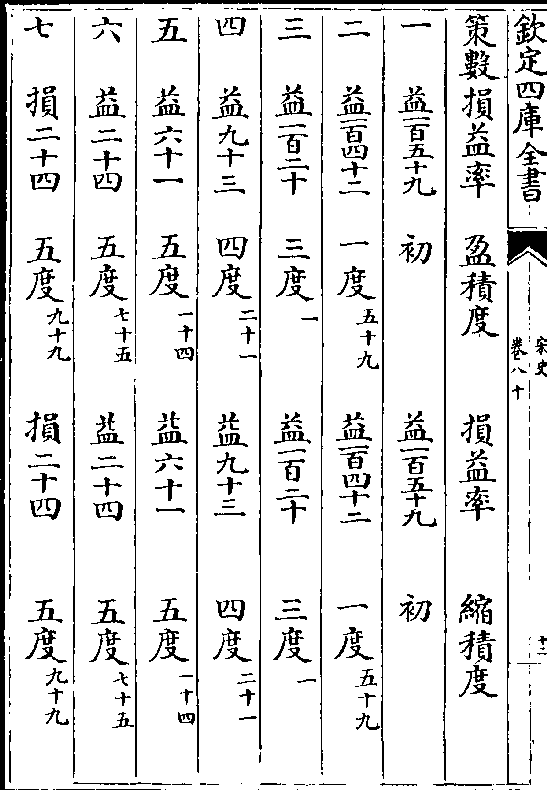 欽定四庫全書
宋史
卷八十
十二
策數 損益率 盈積度 損益率 縮積度
一 益一百五十九 初 益一百五十九 初
二 益一百四十二 一度五十九 益一百四十二 一度五十九
三 益一百二十 三度一 益一百二十 三度一
四 益九十三 四度二十一 益九十三 四度二十一
五 益六十一 五度一十四 益六十一 五度一十四
六 益二十四 五度七十五 益二十四 五度七十五
七 損二十四 五度九十九 損二十四 五度九十九